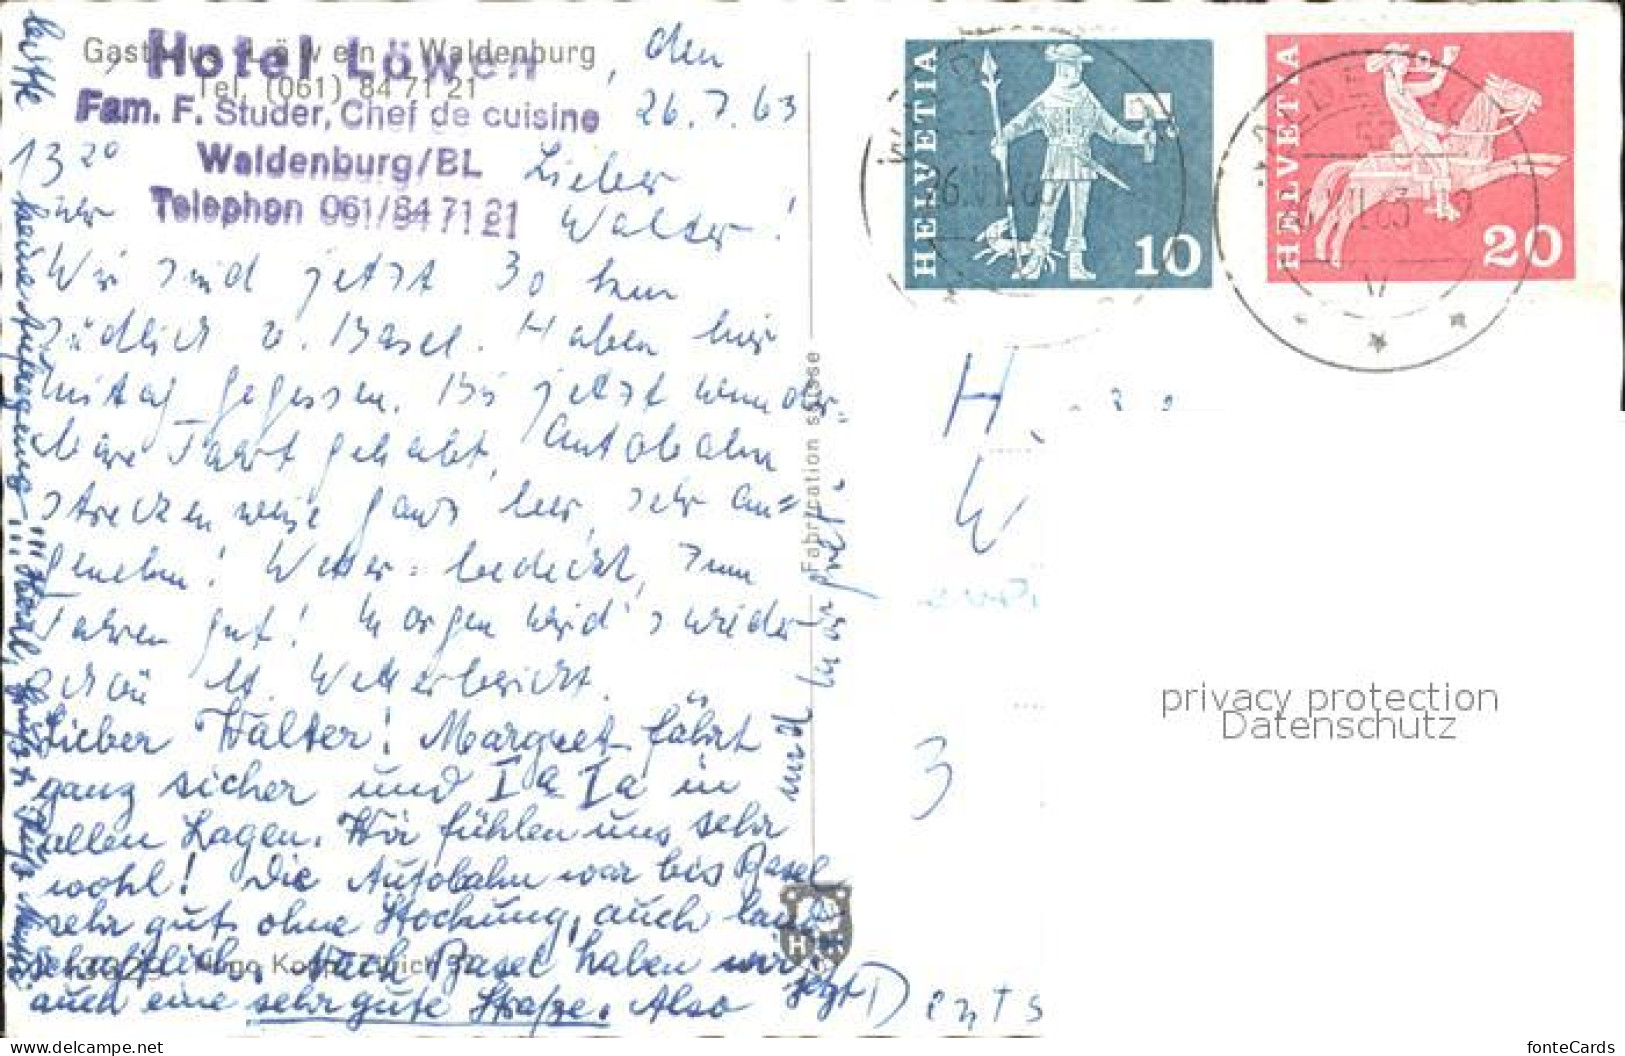 Gasthaus Löwen, Waldenburg
Tel. (061) 84 71 21
Hotel Löwen
Fam. F. Studer, Chef de cuisine
Waldenburg/BL
Telephon 061/84 71 21
, den
26.7.63
13 20
Uhr
Lieber
Walter!
Wir sind jetzt 30 km
südlich v. Basel. Haben hier
Mittag gegessen. Bis jetzt wunder-
bare Fahrt gehabt, Autobahn
streckenweise ganz leer, sehr an=
genehm! Wetter: bedeckt, zum
Fahren gut! Morgen wird's wieder
schön lt. Wetterbericht.
Lieber Walter! Margret fährt
ganz sicher und Ia Ia in
allen Lagen. Wir fühlen uns sehr
wohl! Die Autobahn war bis Basel
sehr gut, ohne Stockung, auch land-
schaftlich. Nach Basel haben wir
auch eine sehr gute Straße. Also
bitte keine Aufregung!!!
und
jetzt
Fabrication suisse
HELVETIA
10
HELVETIA
20
WALDENBURG
26.VII.63
H
W
3
Deuts
privacy protection
Datenschutz
fonteCards
www.delcampe.net